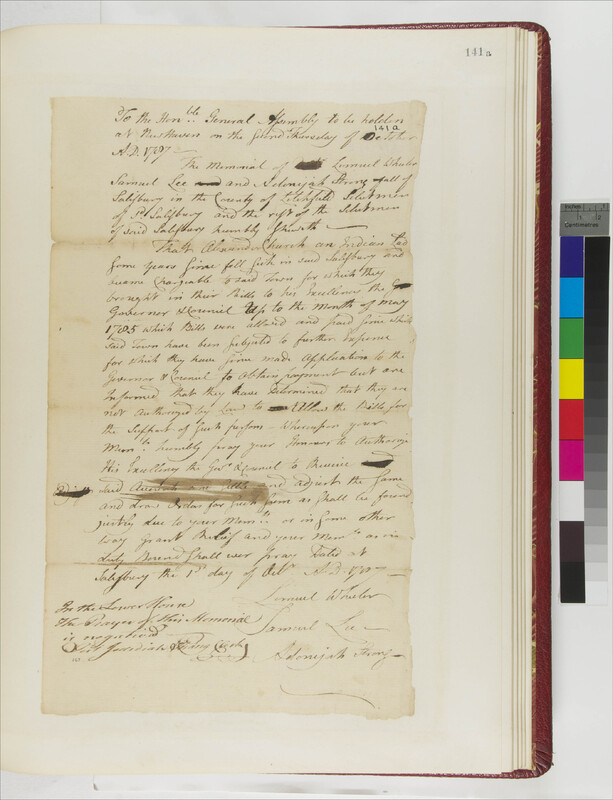 141a
To the Hon.ble General Assembly to be holden
at New Haven on the second Thursday of October
141a
A.D. 1787
The Memorial of Lemuel Wheeler
Samuel Lee and Adonijah Strong all of
Salisbury in the County of Litchfield Selectmen
of sd Salisbury and the rest of the Selectmen
of said Salisbury humbly Sheweth
That Alexander Church an Indian Lad
some years since fell sick in said Salisbury and
became Chargable to said Town for which they
brought in their Bills to his Excellency the
Governor & Council Up to the Month of May
1785 which Bills were allowed and paid since which
said Town have been subjected to further expence
for which they have since made Application to the
Governor & Council to Obtain payment but are
Informed that they have Determined that they are
not Authorized by Law to Allow the Bills for
the Support of such persons - Whereupon your
Memlts humbly pray your Honours to Authorize
His Excellency the Govr & Council to Receive
said Accounts and Bills and adjust the same
and draw Order for such sum as shall be found
justly due to your Memlts or in some other
way grant Relief and your Memlts as in
Duty Bound shall ever pray Dated at
Salisbury the 1st day of Octr A.D. 1787
Lemuel Wheeler
Samuel Lee
Adonijah Strong
In the Lower House
The Prayer of this Memorial
is negatived
Test Jedidiah Clerk
Inches
Centimetres